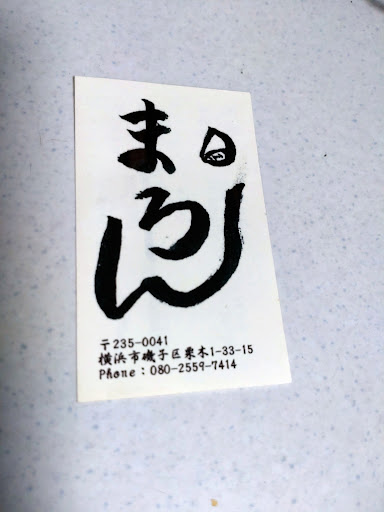 まろん
〒235-0041
横浜市磯子区栗木1-33-15
Phone：080-2559-7414